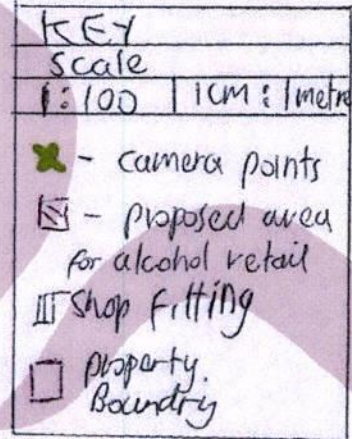 KEY
scale
1:100 1CM : 1metre
- camera points
- proposed area
for alcohol retail
Shop fitting
property
Boundry